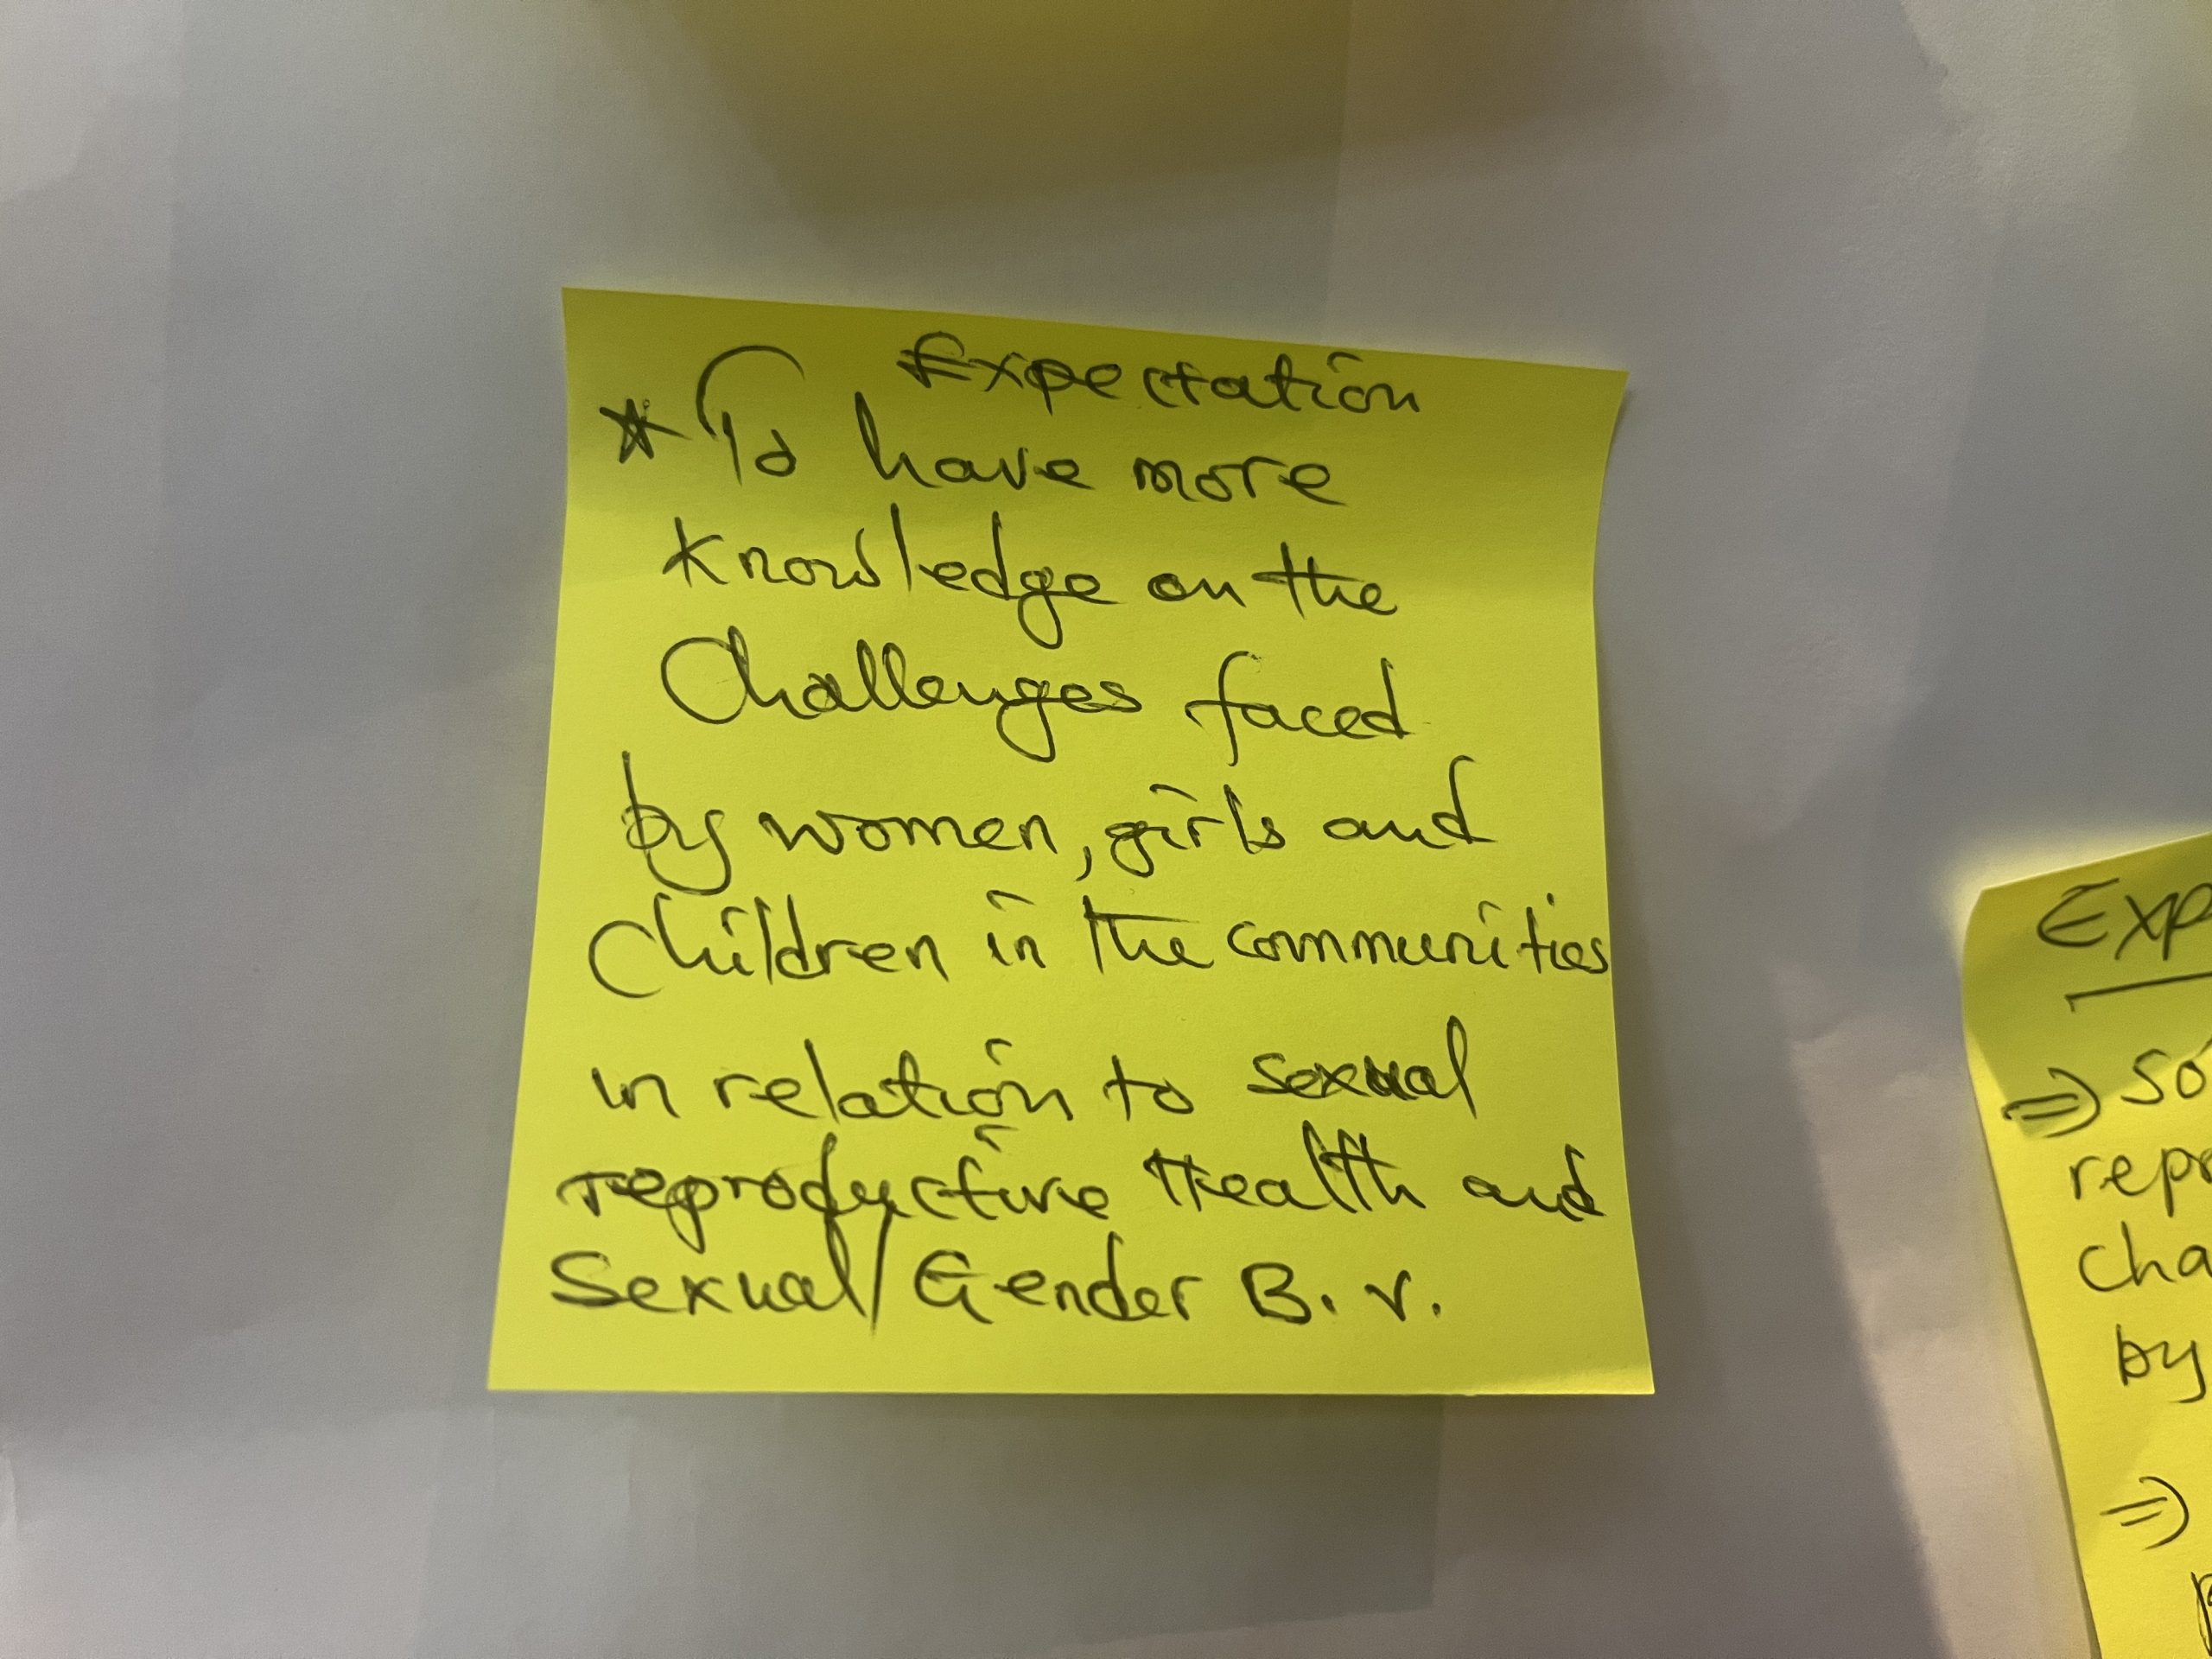 Expectation
* To have more
knowledge on the
Challenges faced
by women, girls and
Children in the communities
in relation to sexual
reproductive Health and
Sexual/Gender B. V.
Exp
⇒ so
repr
cha
by
⇒